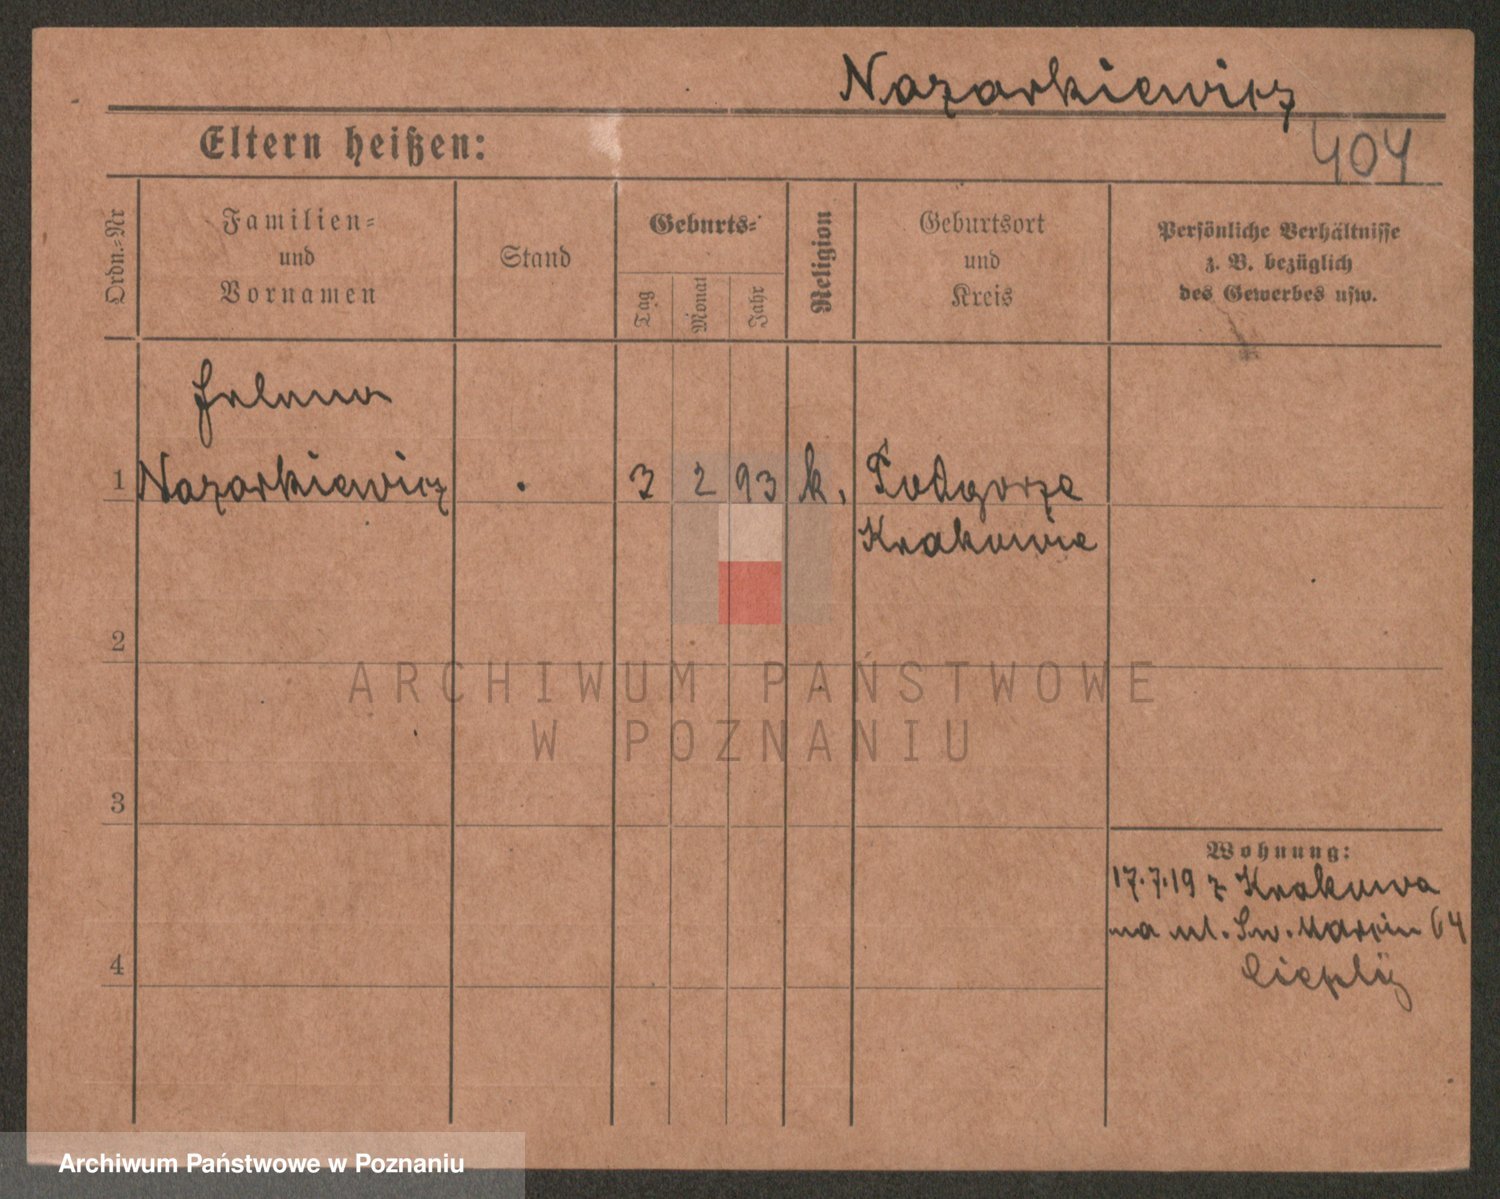 Nazarkiewicz
404
Eltern heißen:
Ordn.-Nr
Familien-
und
Vornamen
Stand
Geburts-
Tag
Monat
Jahr
Religion
Geburtsort
und
Kreis
Persönliche Verhältnisse
z. B. bezüglich
des Gewerbes usw.
Helena
1 Nazarkiewicz . 3 2 93 k. Podgorze
Krakowie
2
ARCHIWUM PAŃSTWOWE
W POZNANIU
3
Wohnung:
17.7.19 z Krakowa
na ul. Św. Marcin 64
4
Archiwum Państwowe w Poznaniu